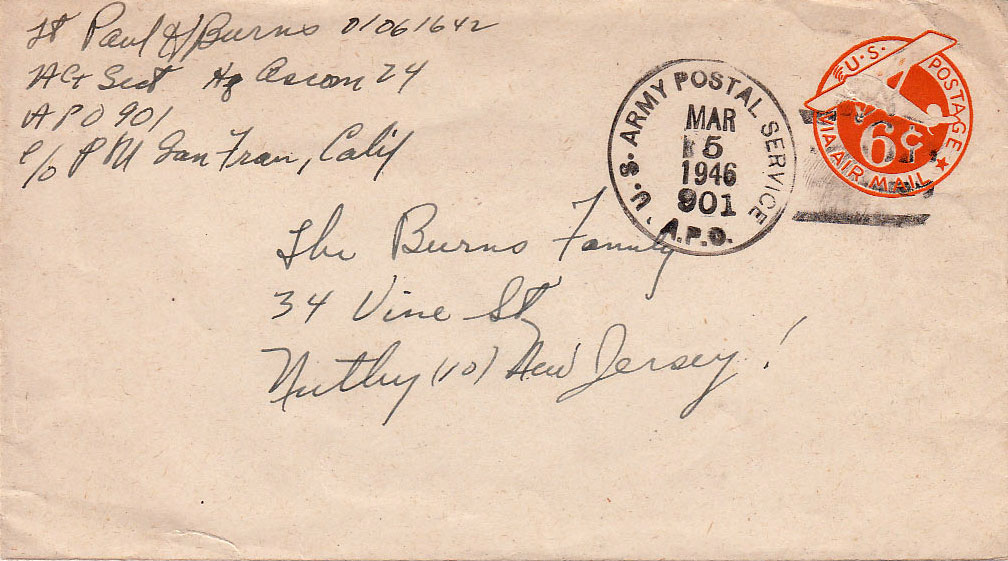 Lt Paul H Burns 01061642
Act Sect Hq Ascom 24
APO 901
c/o PM San Fran, Calif
U.S. ARMY POSTAL SERVICE
MAR
5
1946
901
A.P.O.
U.S. POSTAGE
6¢
VIA AIR MAIL
The Burns Family
34 Vine St
Nutley (10) New Jersey!